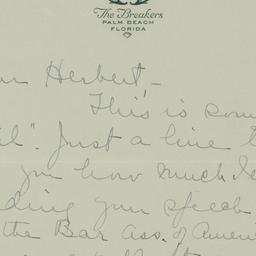 The Breakers
PALM BEACH
FLORIDA
Herbert -
This is
Just a line
you how much
your speech
the Bar Ass. of